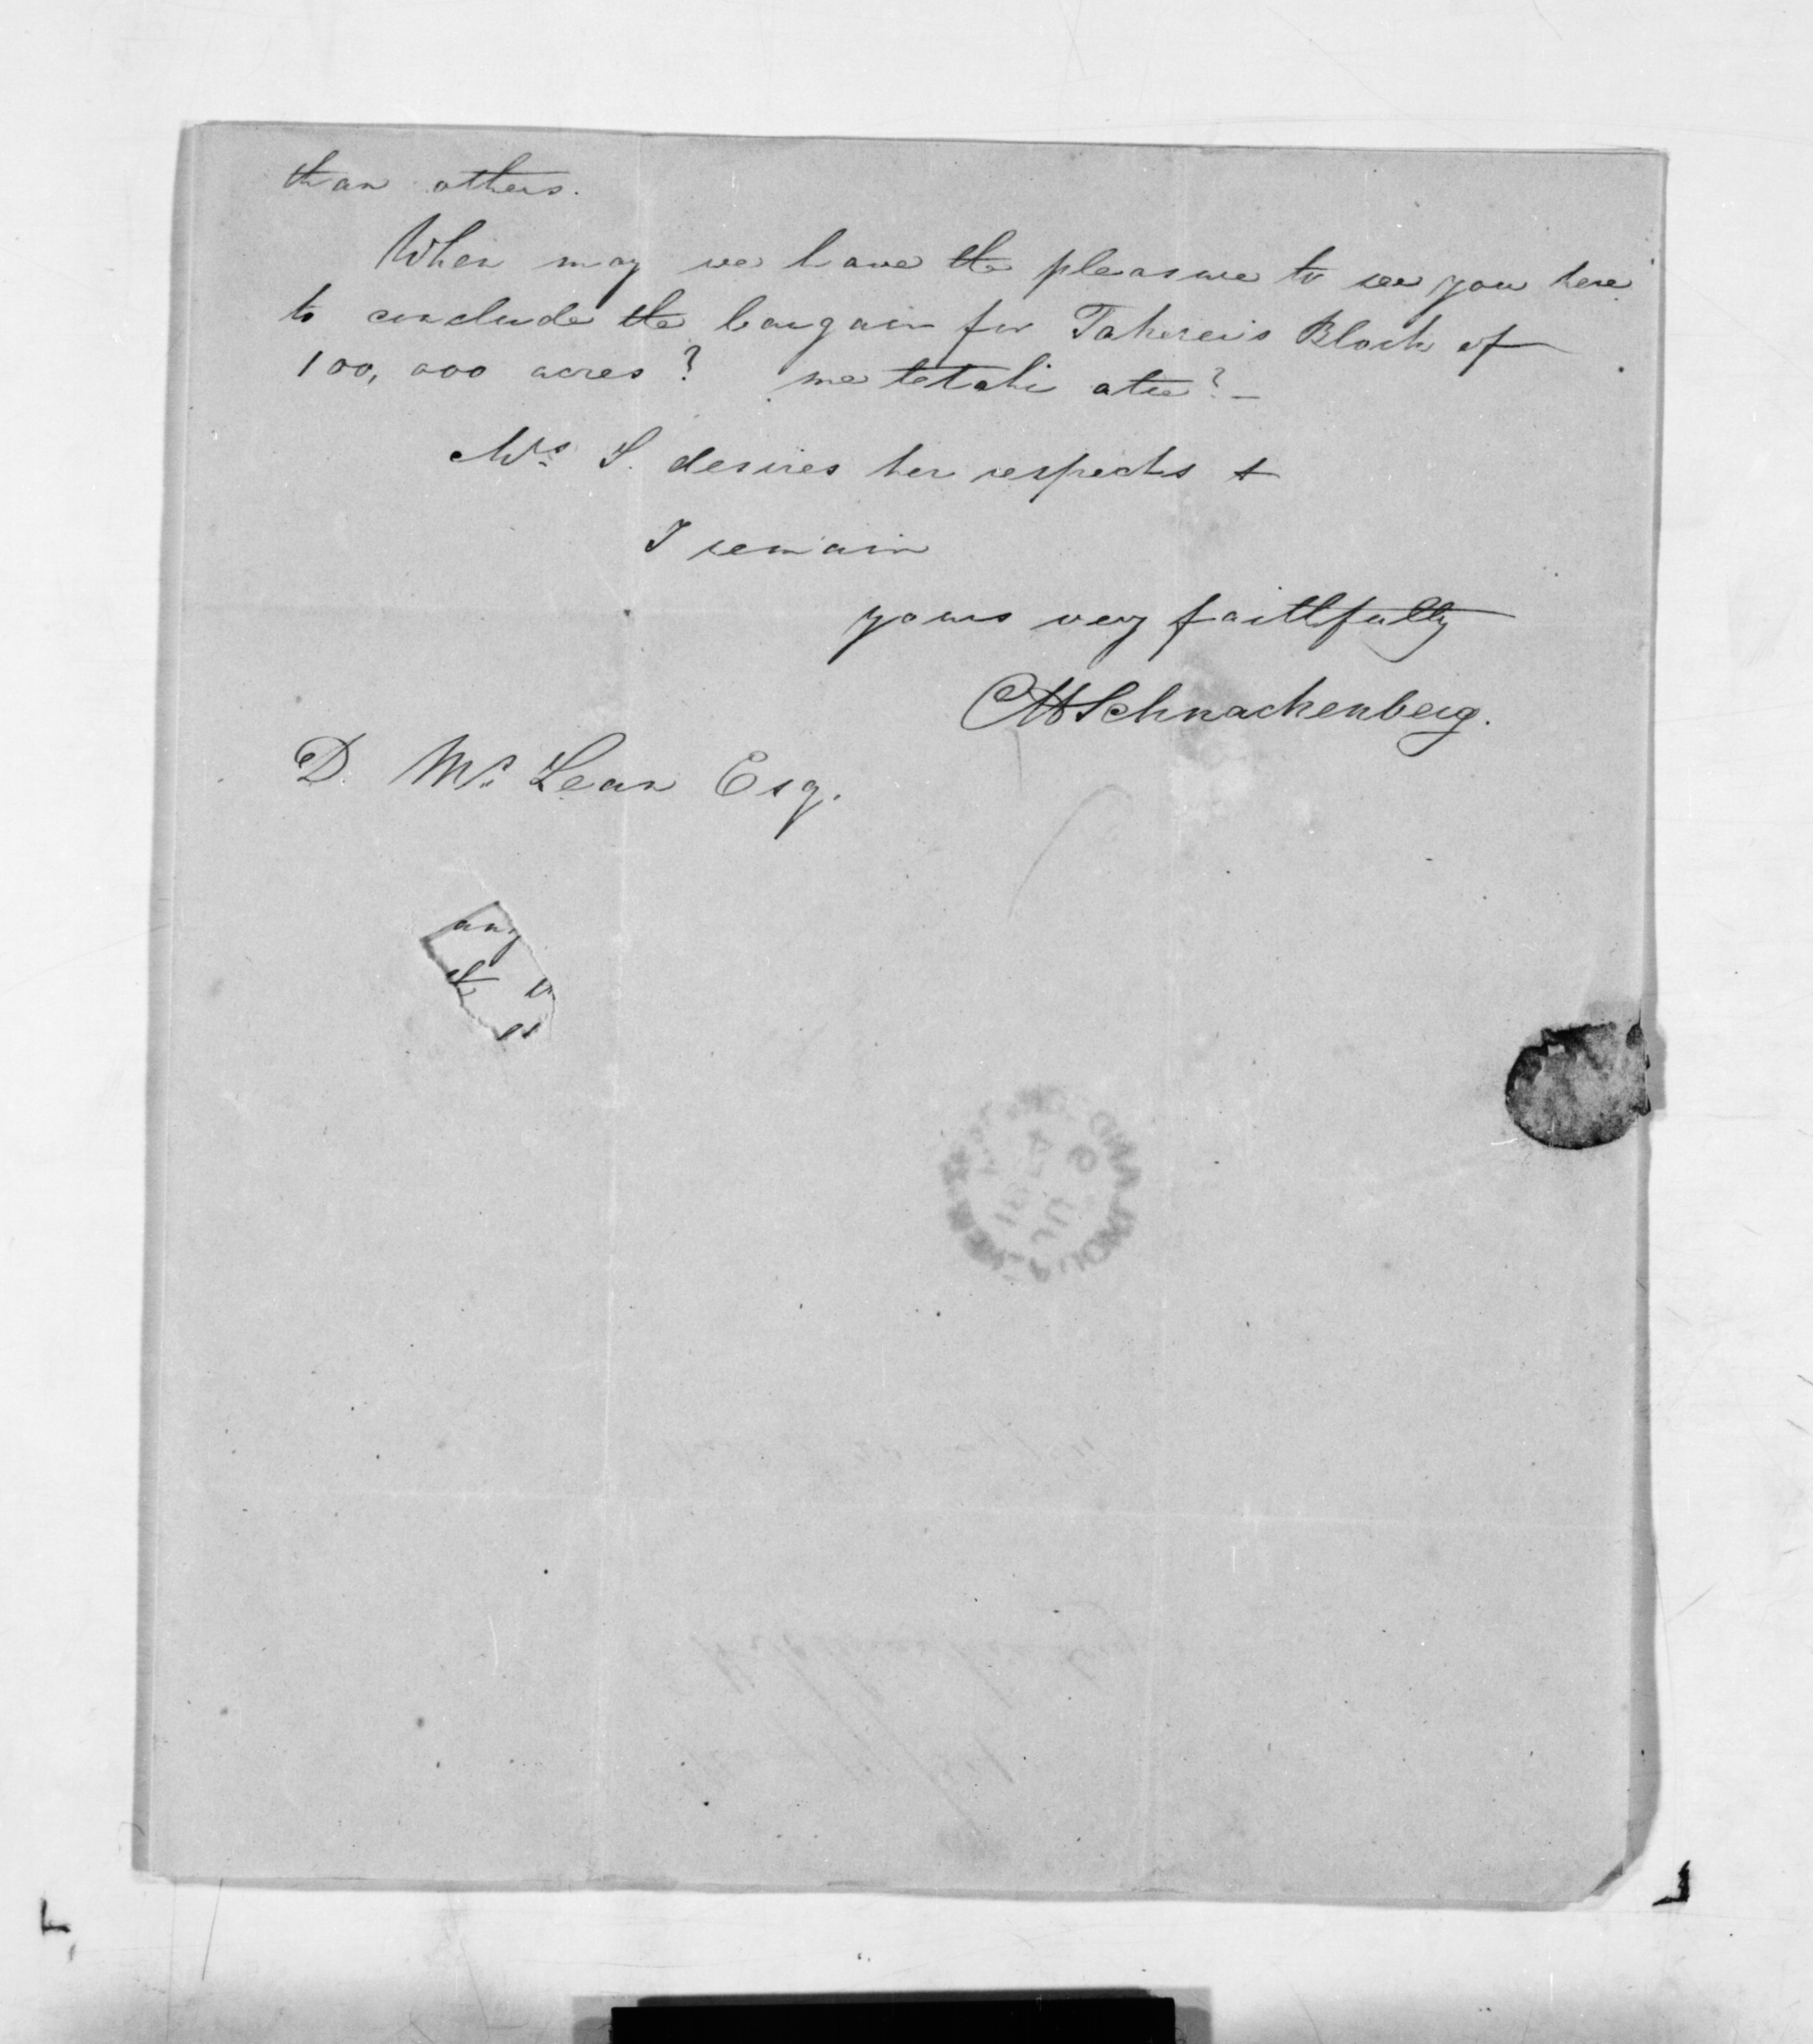 than others.
When may we have the pleasure to see you here
to conclude the bargain for Taherei's Block of
100,000 acres? me tetahi atu? —
Mrs. S. desires her respects &
I remain
yours very faithfully
CHSchnackenberg.
D. Mc. Lean Esq.
any